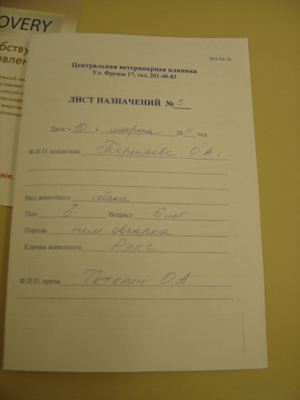 OVERY
998-64-78
Центральная ветеринарная клиника
Ул. Фрунзе 17, тел. 201-40-83
ЛИСТ НАЗНАЧЕНИЙ № 3
Дата « 10 » марта 20 год
Ф.И.О. владельца О.А.
Вид животного собака
Пол Возраст 6 лет
Порода нем овчарка
Кличка животного Рэкс
Ф.И.О. врача Тетерин О.А